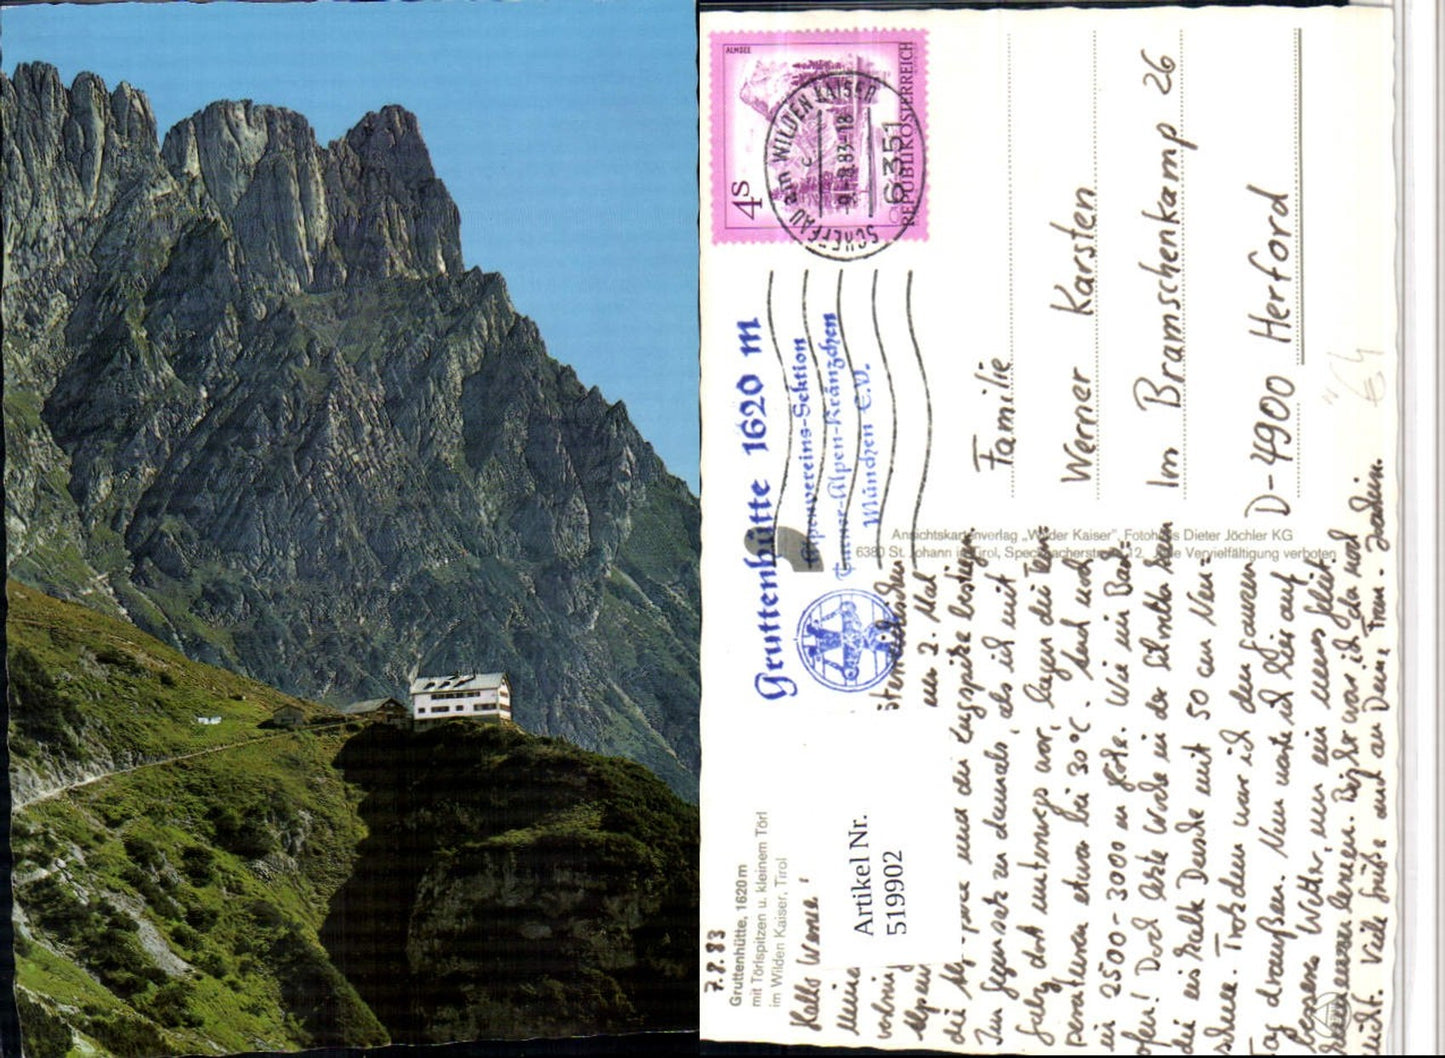 ALMSEE
4S
REPUBLIK ÖSTERREICH
SCHEFFAU am WILDEN KAISER
-9.-8.83-18
6351
Gruttenhütte 1620 m
Alpenvereins-Sektion
Turner-Alpen-Kränzchen
München E.V.
Familie
Werner Karsten
Im Bramschenkamp 26
D-4900 Herford
Ansichtskartenverlag „Wilder Kaiser", Fotohaus Dieter Jöchler KG
6380 St. Johann in Tirol, Speckbacherstraße 12, Jede Vervielfältigung verboten
Gruttenhütte, 1620 m
mit Törlspitzen u. kleinem Törl
im Wilden Kaiser, Tirol
Artikel Nr.
519902
7.8.83
Hallo Werner,
Meine
zum 2. Mal
die und die Zugspitze bestiegen
Im Gegensatz zu damals, als ich mit
dort unterwegs war, lagen die Tem=
peraturen etwa bei 30°C. Auch noch
in 2500-3000 m Höhe. Wie ein Back=
ofen! Doch letzte Woche in der
die eis kalte Dusche mit 50 cm Neu=
schnee. Trotzdem war ich den ganzen
Tag draußen. Nun warte ich hier auf
besseres Wetter, um ein neues Gebiet
kennen lernen. Bisher war ich da noch
nicht. Viele Grüße auch an Deine Frau. Joachim.